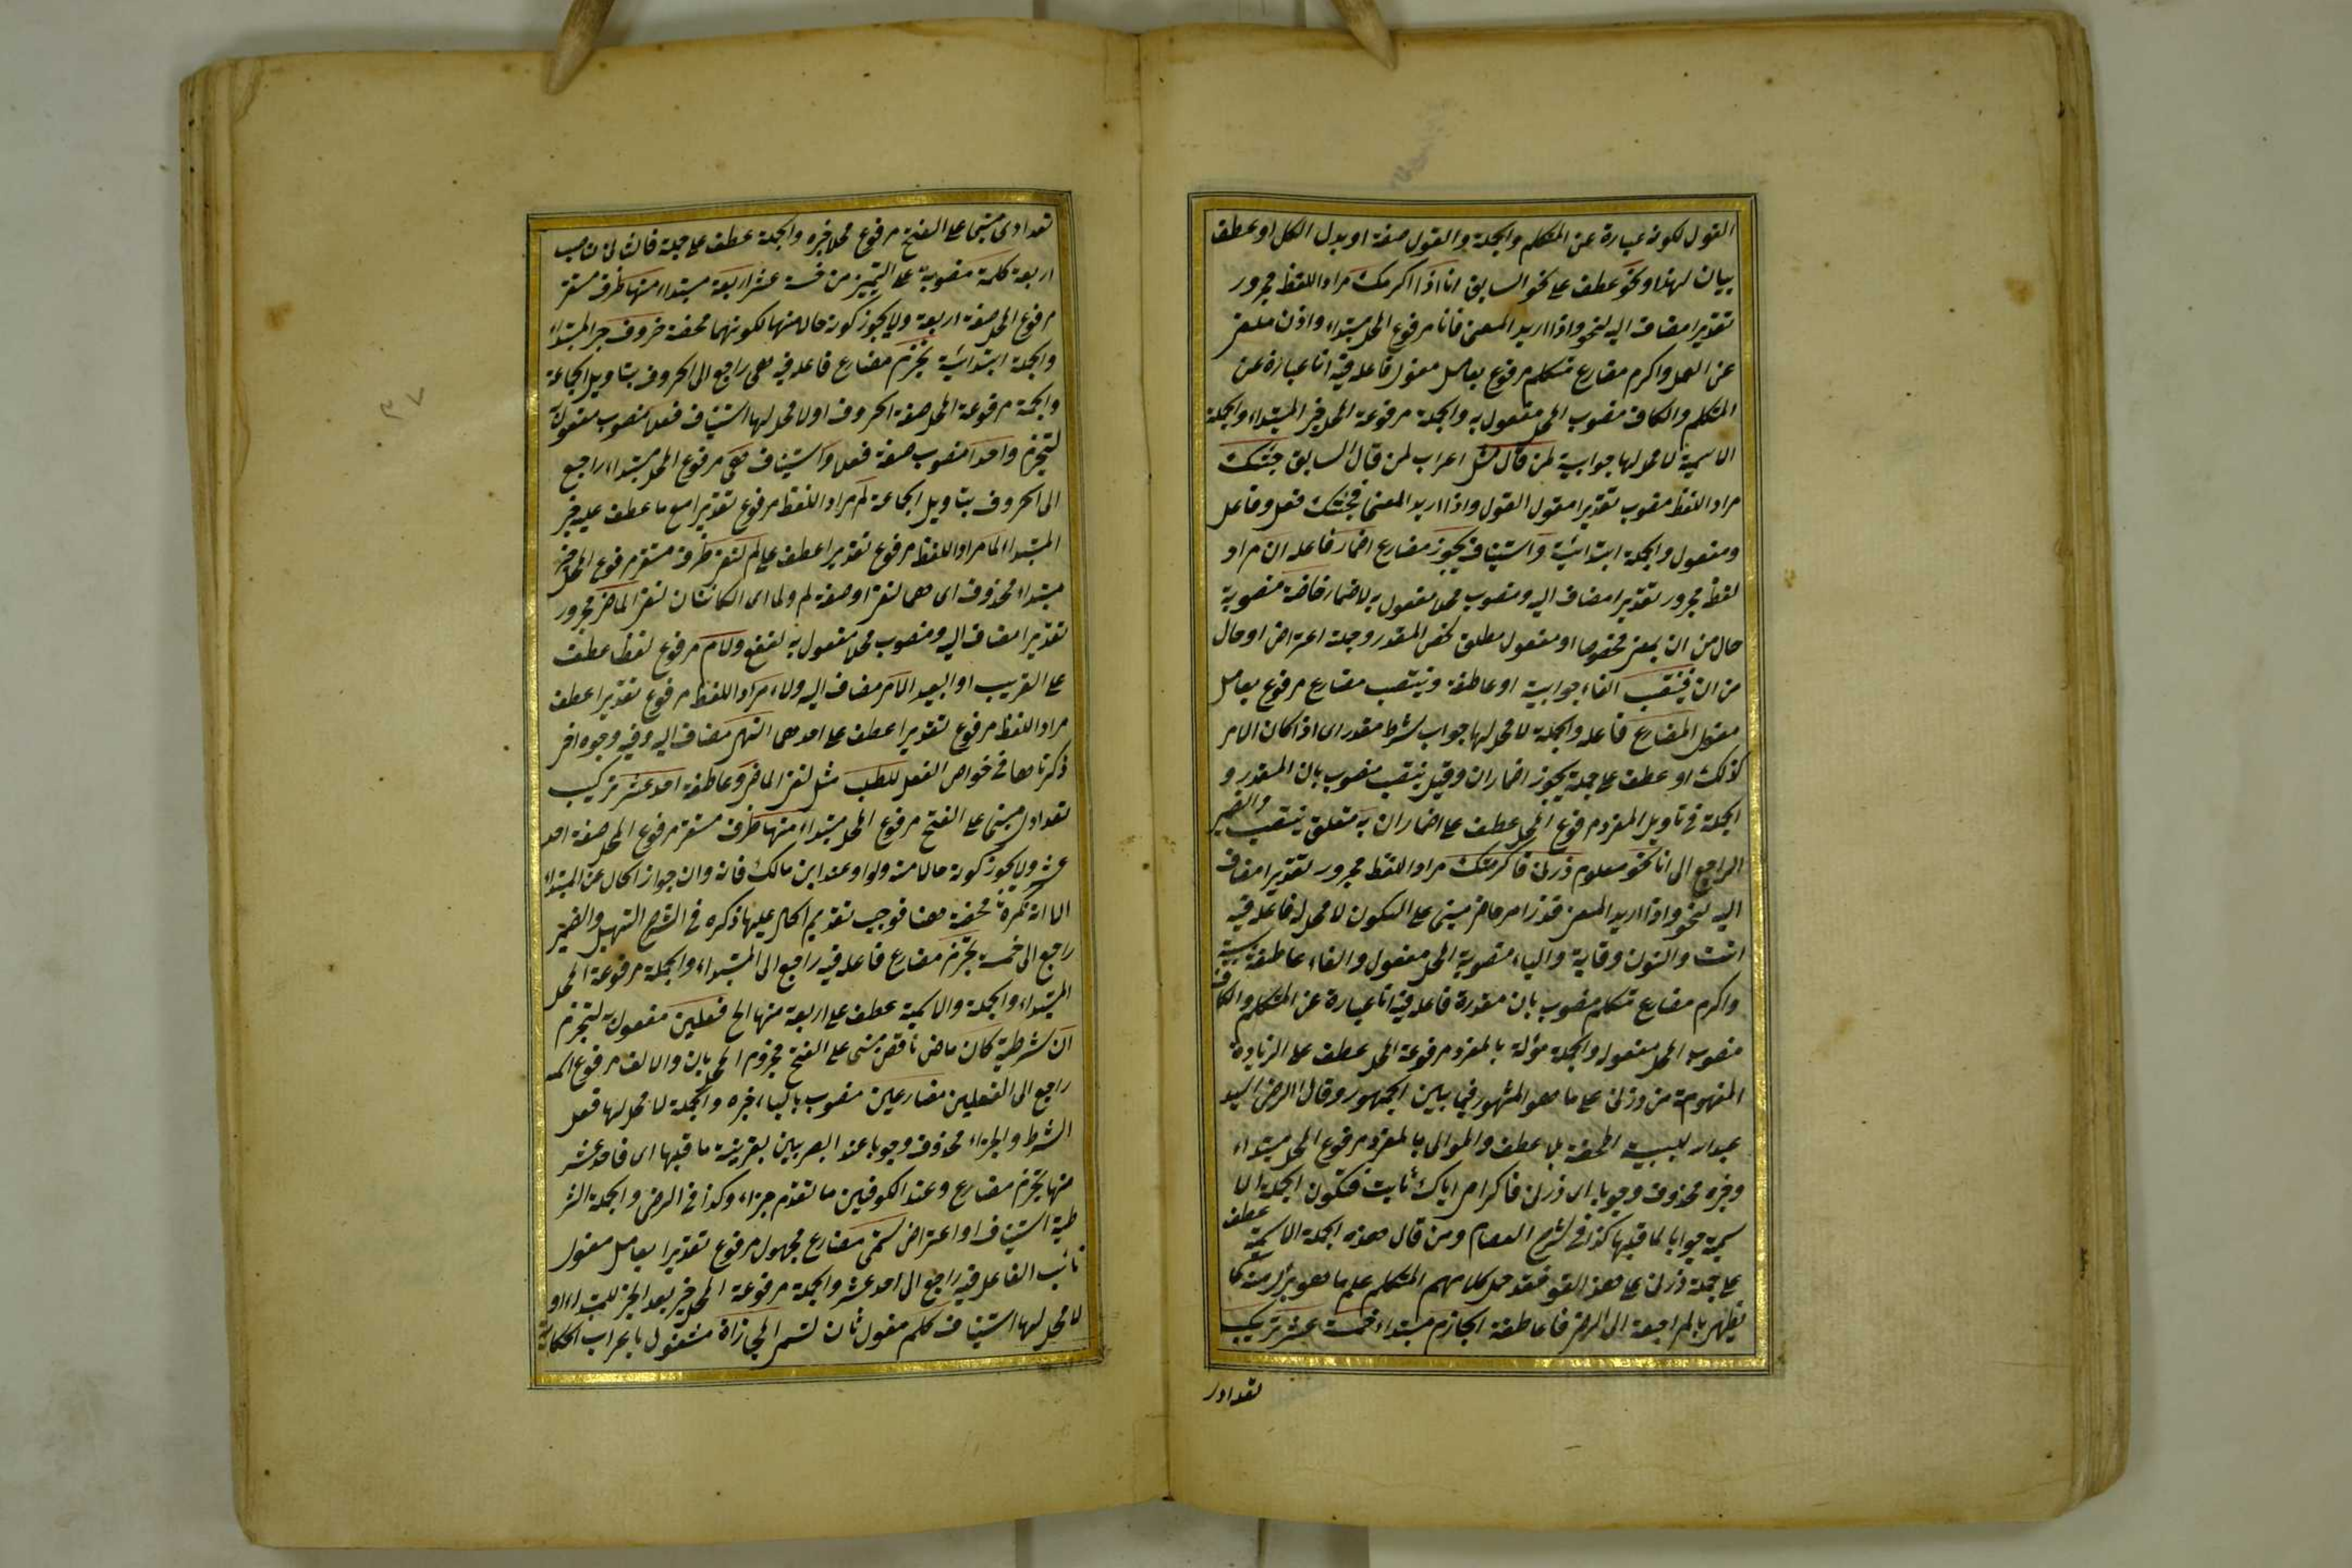 القول لكونه عبارة عن المتكلم والجملة والقول صفة او بدل الكل او عطف
بيان لهذا ونحو عطف على نحو السابق انا اذا اكرمك مراد اللفظ مجرور
تقديرا مضاف اليه لنحو واذا اريد المعنى فانا مرفوع المحل مبتداء واذن ملغى
عن العمل واكرم مضارع متكلم مرفوع بعامل معنوى فاعله فيه انا عبارة عن
المتكلم والكاف منصوب المحل مفعول به والجملة مرفوعة المحل خبر المبتداء والجملة
الاسمية لا محل لها جوابية لمن قال مثل اعراب لمن قال السابق جئتك
مراد اللفظ منصوب تقديرا مقول القول واذا اريد المعنى فجئتك فعل وفاعل
ومفعول والجملة ابتدائية واستيناف يجوز مضارع اضمار فاعله ان مراد
لفظ مجرور تقديرا مضاف اليه ومنصوب محلا مفعول به لاضمار خاصة منصوبة
حال من ان بمعنى مخصوصا او مفعول مطلق لخص المقدر وجملة اعتراض او حال
من ان فينتصب الفاء جوابية او عاطفة وينتصب مضارع مرفوع بعامل
معنوى المضارع فاعله والجملة لا محل لها جواب شرط مقدر اى اذا كان الامر
كذلك او عطف على جملة يجوز اضمار ان وقيل ينتصب منصوب بان المقدر و
الجملة فى تاويل المفرد مرفوع المحل عطف على اضمار ان به متعلق ينتصب والضمير
الراجع الى انا نحو معلوم زرنى فاكرمك مراد اللفظ مجرور تقديرا مضاف
اليه لنحو واذا اريد المعنى فزر امر حاضر مبنى على السكون لا محل له فاعله فيه
انت والنون وقاية والياء منصوبة المحل مفعول والفاء عاطفة سببية
واكرم مضارع متكلم منصوب بان مقدرة فاعله فيه انا عبارة عن المتكلم والكاف
منصوب المحل مفعوله والجملة مؤلة بالمفرد مرفوعة المحل عطف على الزيادة
المفهومة من زرنى على ما هو المشهور فيما بين الجمهور وقال الرضى السيد
للسببية المحضة بلا عطف والموالى بالمفرد مرفوع المحل مبتداء
وخبره محذوف وجوبا اى زرنى فاكرامى اياك ثابت فتكون الجملة الا
سمية جوابا لما قبلها كذا فى شرح العصام ومن قال هذه الجملة الاسمية عطف
على جملة زرنى على هذا القول فقد حمل كلامهم المتكلم على ما هو برئ منه كما
يظهر بالمراجعة الى الرضى فا عاطفة الجازم مبتداء خمسة عشر تركيب
تعدادى
تعدادى مبنى على الفتح مرفوع محلا خبره والجملة عطف على جملة فالثانى ناصب
اربعة كلمة منصوبة على التمييز من خمسة عشر اربعة مبتداء منها ظرف مستقر
مرفوع المحل صفة اربعة ولا يجوز كونه حالا منها لكونها محضة حروف خبر المبتداء
والجملة ابتدائية تجزم مضارع فاعله فيه هى راجع الى الحروف بتاويل الجماعة
والجملة مرفوعة المحل صفة الحروف او لا محل لها استيناف فعلا منصوب مفعول
لتجزم واحدا منصوب صفة فعلا واستيناف هى مرفوع المحل مبتداء راجع
الى الحروف بتاويل الجماعة لم مراد اللفظ مرفوع تقديرا مع ما عطف عليه خبر
المبتداء لما مراد اللفظ مرفوع تقديرا عطف على لم لنفى ظرف مستقر مرفوع المحل خبر
مبتداء محذوف اى هما لنفى او صفة لم ولما اى الكائنتان لنفى الماضى مجرور
تقديرا مضاف اليه ومنصوب محلا مفعول به لنفى ولام مرفوع لفظا عطف
على القريب او البعيد الامر مضاف اليه ولاء مراد اللفظ مرفوع تقديرا عطف
مراد اللفظ مرفوع تقديرا عطف على احدهما النهى مضاف اليه وفيه وجوه اخر
ذكرناها فى خواص الفعل للطلب مثل لنفى الماضى وعاطفة احد عشر تركيب
تعدادى مبنى على الفتح مرفوع المحل مبتداء منها ظرف مستقر مرفوع المحل صفة احد
عشر ولا يجوز كونه حالا منه ولو عند ابن مالك فانه وان جواز الحال عن المبتداء
الا انه نكرة محضة هنا فوجب تقديم الحال عليها ذكره فى الشرح التسهيل والضمير
راجع الى خمسة تجزم مضارع فاعله فيه راجع الى المبتداء والجملة مرفوعة المحل
المبتداء والجملة والاسمية عطف على اربعة منها الخ فعلين مفعول به لتجزم
ان شرطية كان ماض ناقص مبنى على الفتح مجزوم المحل بان والالف مرفوع
راجع الى الفعلين مضارعين منصوب بالياء خبره والجملة لا محل لها فعل
الشرط والجزاء محذوف وجوبا عند البصريين بقرينة ما قبلها اى فاحد عشر
منها تجزم مضارع وعند الكوفيين ما تقدم جزاء وكذا فى الرضى والجملة الشر
طية استيناف او اعتراض تسمى مضارع مجهول مرفوع تقديرا بعامل معنوى
نائب الفاعل فيه راجع الى احد عشر والجملة مرفوعة المحل خبر بعد الخبر للمبتداء او
لا محل لها استيناف كلم مفعول ثان لتسمى المجازاة مشغول باعراب الحكاية